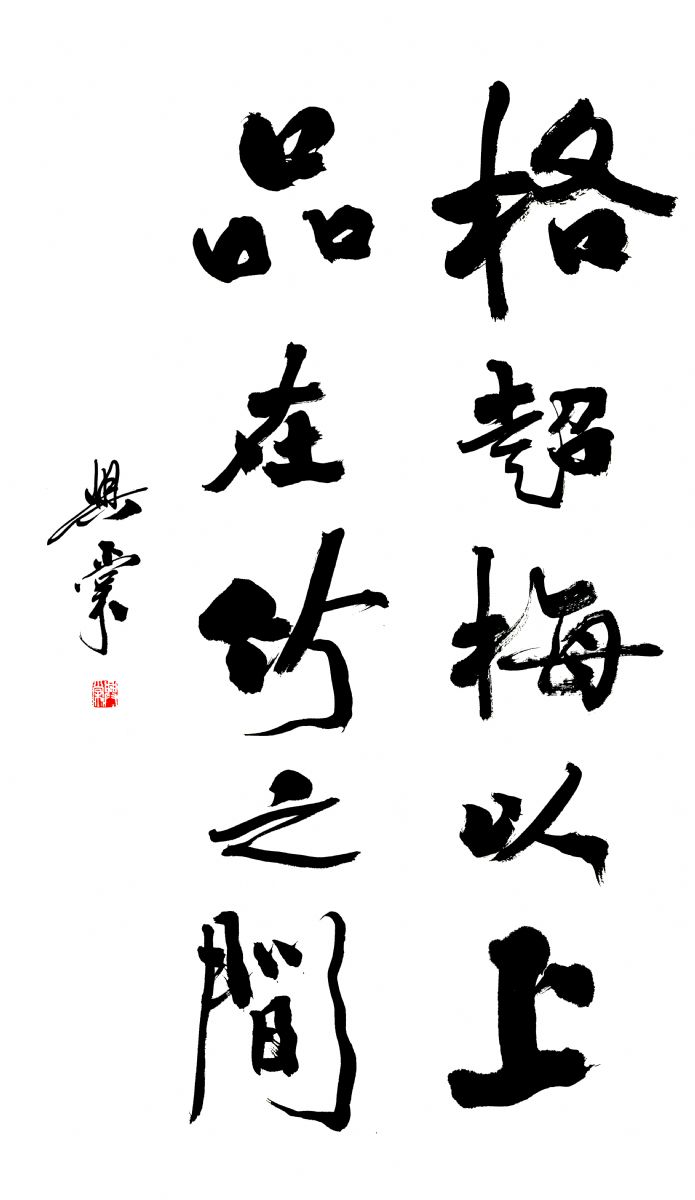 格超梅以上
品在竹之間
興棠